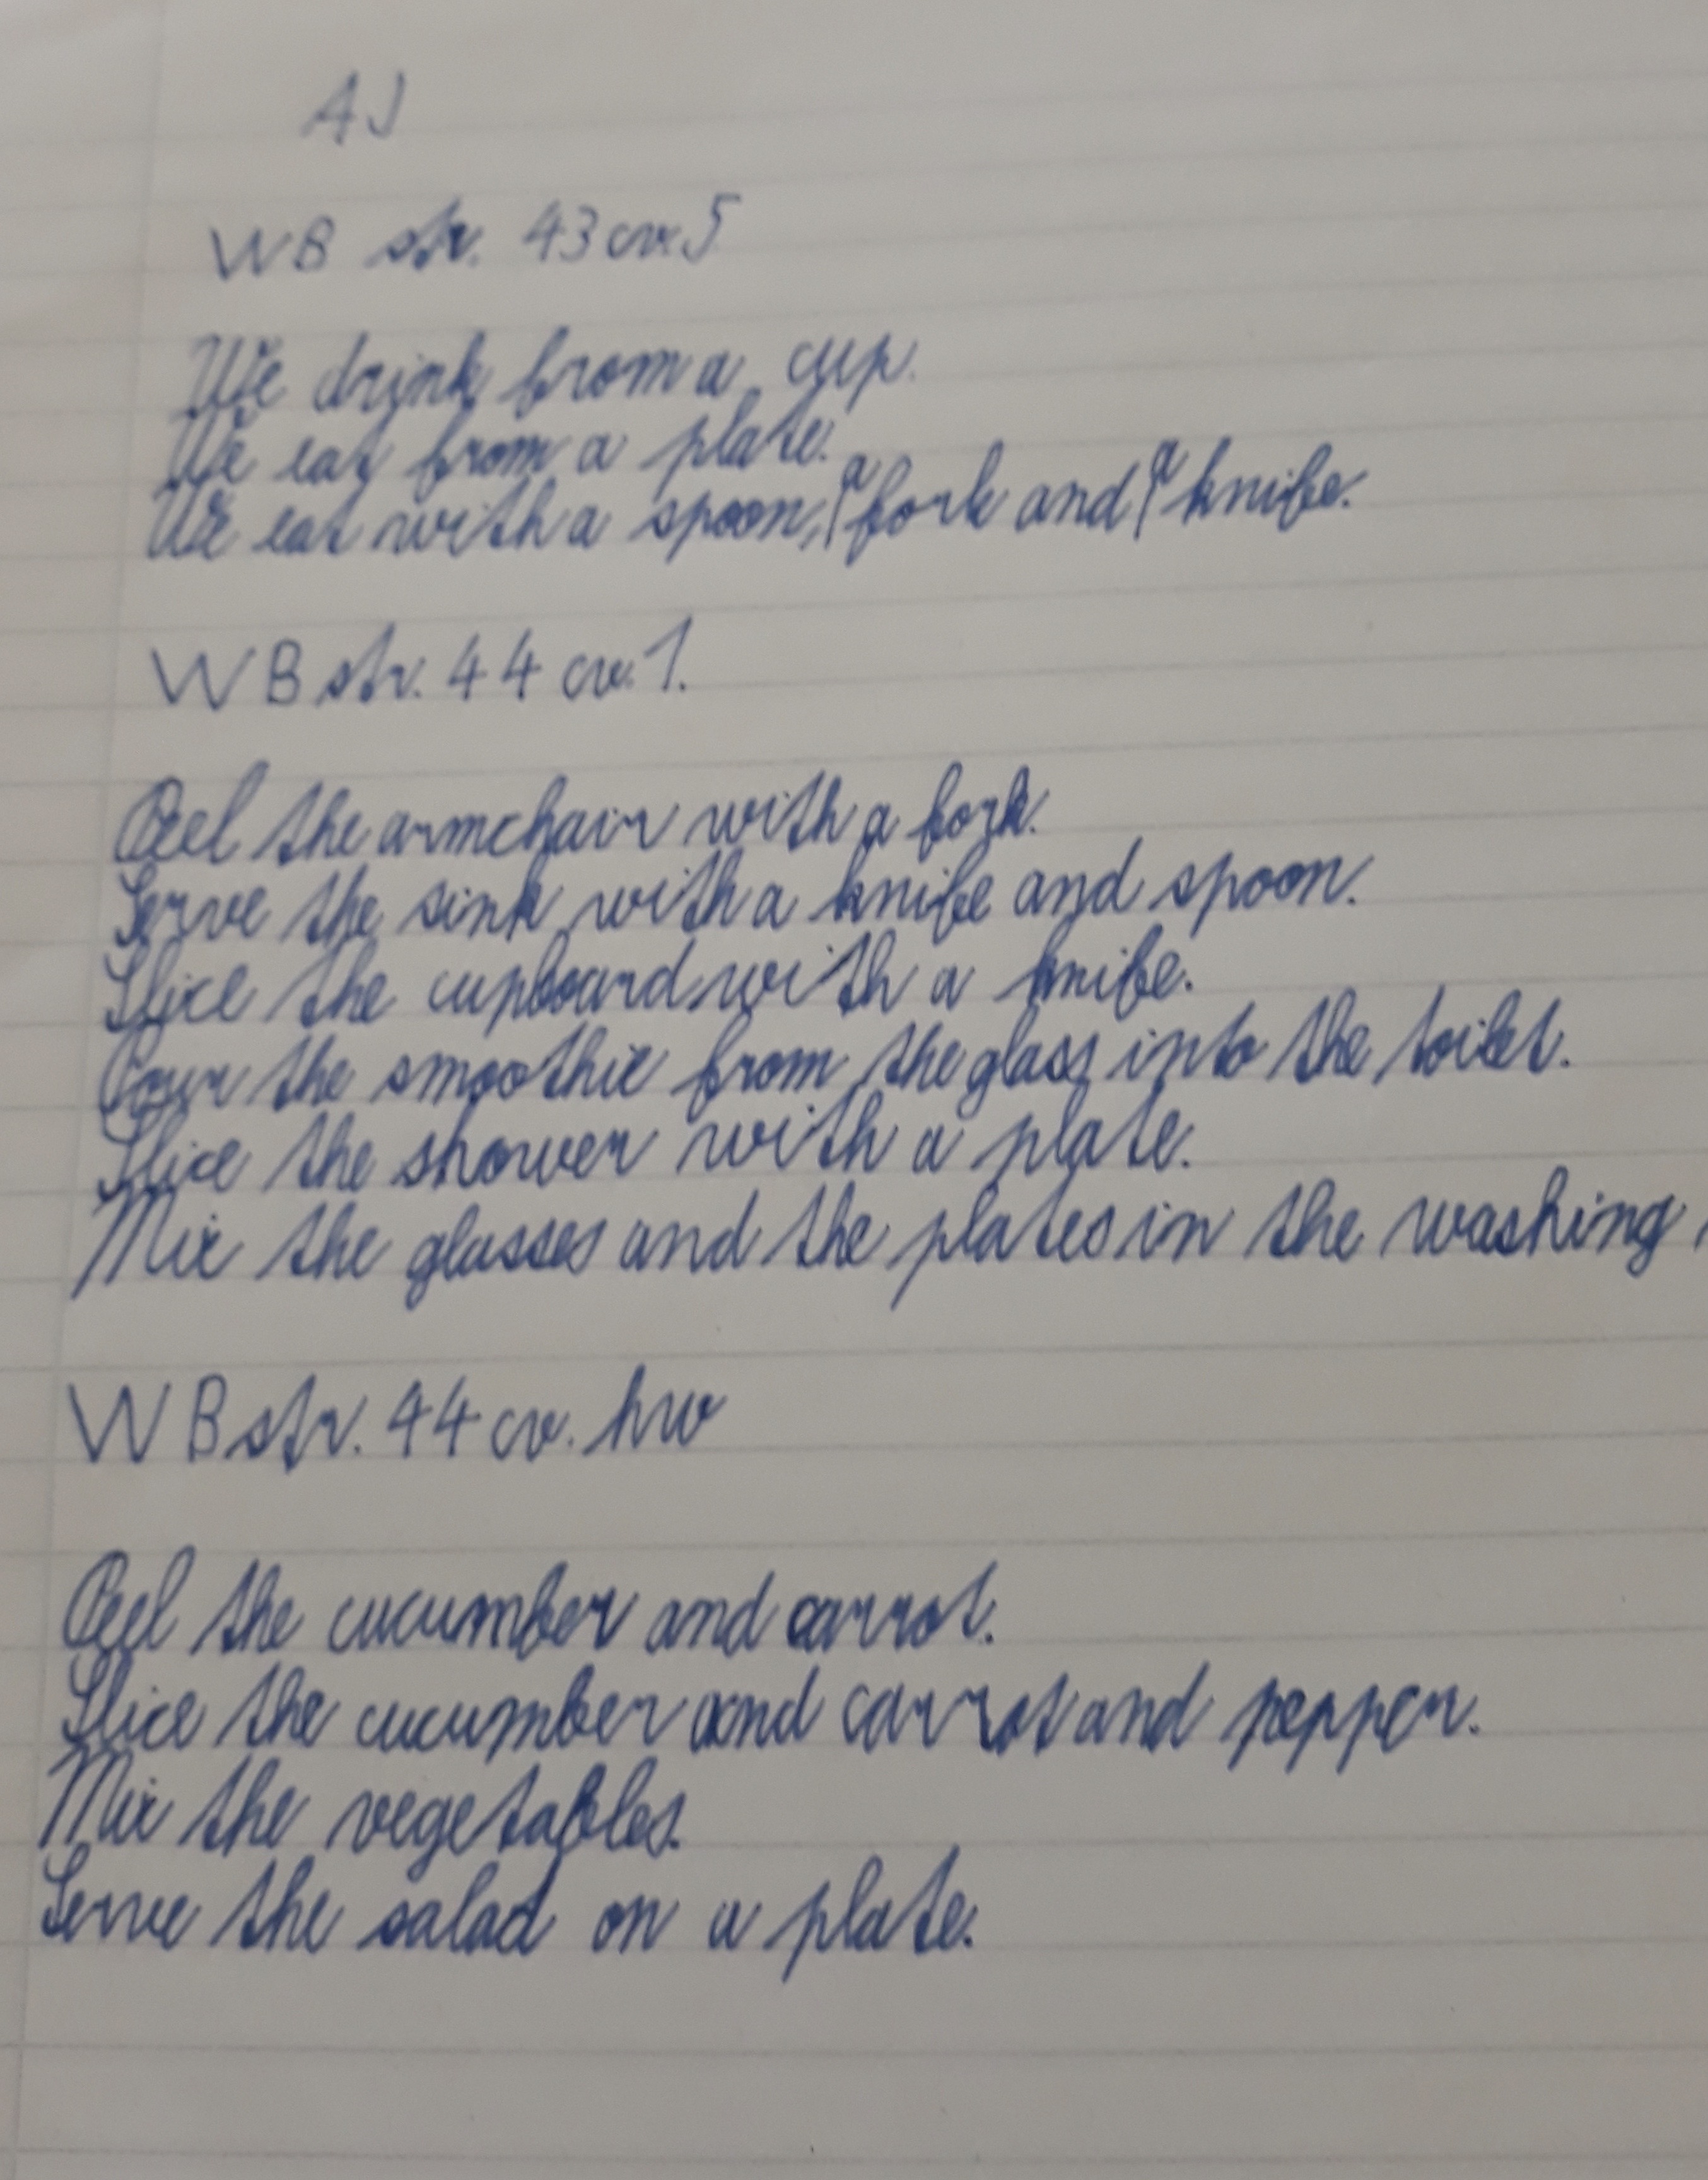 AJ
WB str. 43 cv. 5
We drink from a cup.
We eat from a plate.
We eat with a spoon, a fork and a knife.
WB str. 44 cv. 1.
Peel the armchair with a fork.
Serve the sink with a knife and spoon.
Slice the cupboard with a knife.
Pour the smoothie from the glass into the toilet.
Slice the shower with a plate.
Mix the glasses and the plates in the washing
WB str. 44 cv. hw
Peel the cucumber and carrot.
Slice the cucumber and carrot and pepper.
Mix the vegetables.
Serve the salad on a plate.